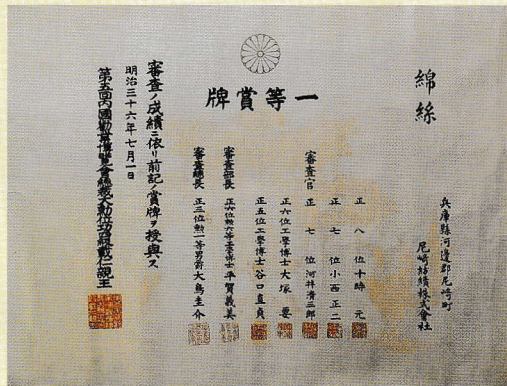 綿絲
兵庫縣河邊郡尼崎町
尼崎紡績株式會社
一等賞牌
正八位十時元
審査官 正七位小西正二
正七位河井清三郎
正六位工學博士大塚要
正五位工學博士谷口直貞
審査部長 正六位勲六等工學博士平賀義美
審査總長 正三位勲一等男爵大鳥圭介
審査ノ成績ニ依リ前記ノ賞牌ヲ授與ス
明治三十六年七月一日
第五回內國勸業博覽會總裁大勲位功四級載仁親王